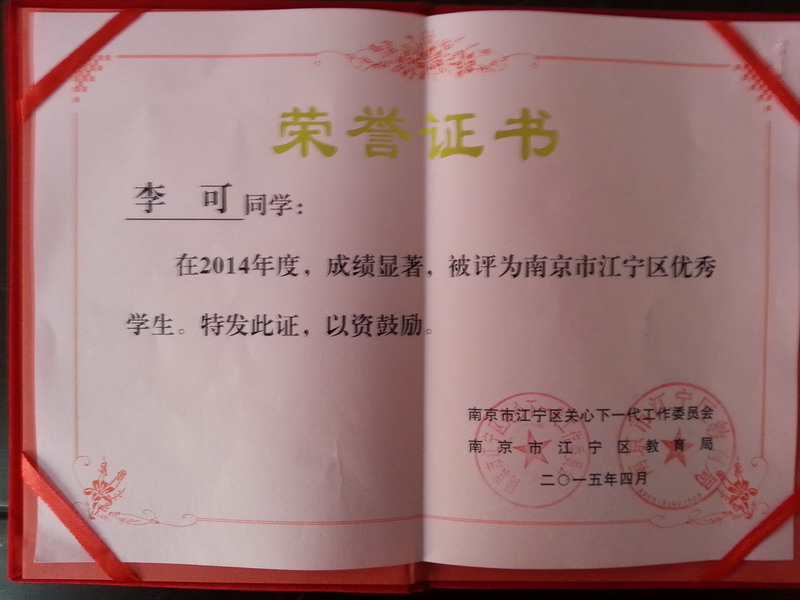 荣誉证书
李 可 同学：
在2014年度，成绩显著，被评为南京市江宁区优秀
学生。特发此证，以资鼓励。
南京市江宁区关心下一代工作委员会
南京市江宁区教育局
二〇一五年四月